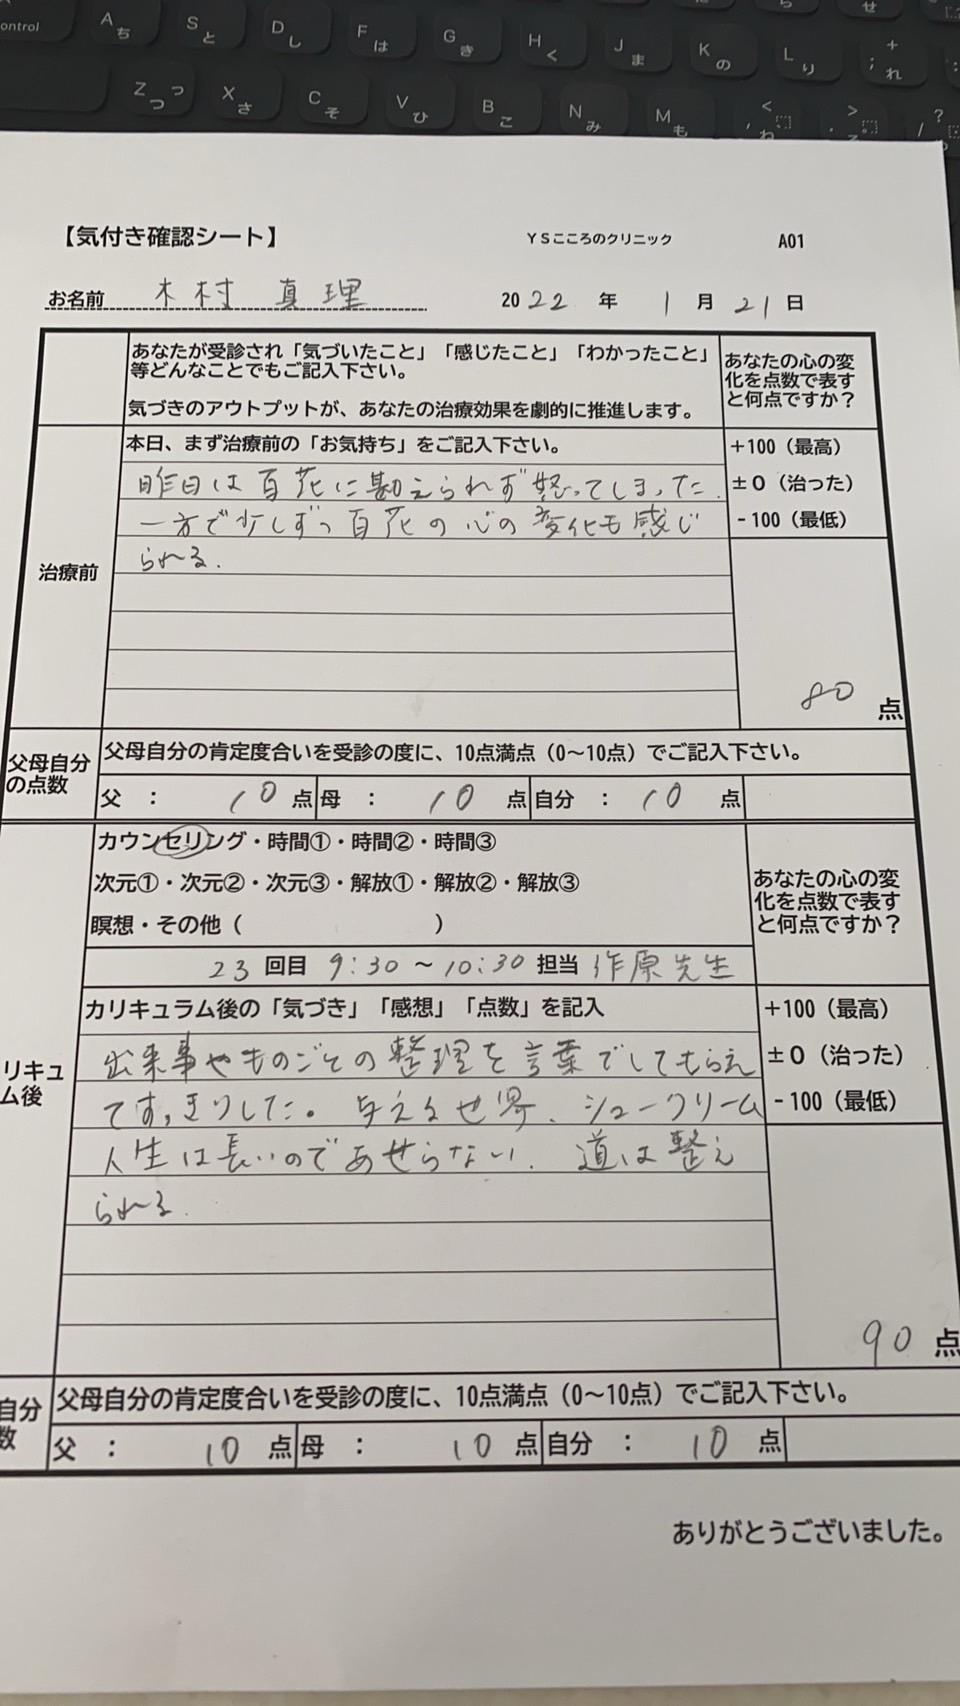 control A ち S と D し F は G き H く J ま K の L り + ; れ せ
Z つ っ X さ C そ V ひ B こ N み M も < , ね > . ? /
【気付き確認シート】 YSこころのクリニック A01
お名前 木村 真理 2022 年 1 月 21 日
あなたが受診され「気づいたこと」「感じたこと」「わかったこと」
等どんなことでもご記入下さい。
気づきのアウトプットが、あなたの治療効果を劇的に推進します。
あなたの心の変
化を点数で表す
と何点ですか？
治療前
本日、まず治療前の「お気持ち」をご記入下さい。
昨日は百花に勘えられず怒ってしまった.
一方で少しずつ百花の心の変化も感じ
られる.
+100（最高）
±0（治った）
-100（最低）
80 点
父母自分
の点数
父母自分の肯定度合いを受診の度に、10点満点（0〜10点）でご記入下さい。
父 ： 10 点 母 ： 10 点 自分 ： 10 点
カウンセリング・時間①・時間②・時間③
次元①・次元②・次元③・解放①・解放②・解放③
瞑想・その他（ ）
23 回目 9:30 〜 10:30 担当 作原先生
あなたの心の変
化を点数で表す
と何点ですか？
リキュ
ム後
カリキュラム後の「気づき」「感想」「点数」を記入
出来事やものごとの整理を言葉でしてもらえ
てすっきりした。 与えるせ界. シュークリーム
人生は長いのであせらない. 道は整え
られる.
+100（最高）
±0（治った）
-100（最低）
90 点
自分
数
父母自分の肯定度合いを受診の度に、10点満点（0〜10点）でご記入下さい。
父 ： 10 点 母 ： 10 点 自分 ： 10 点
ありがとうございました。